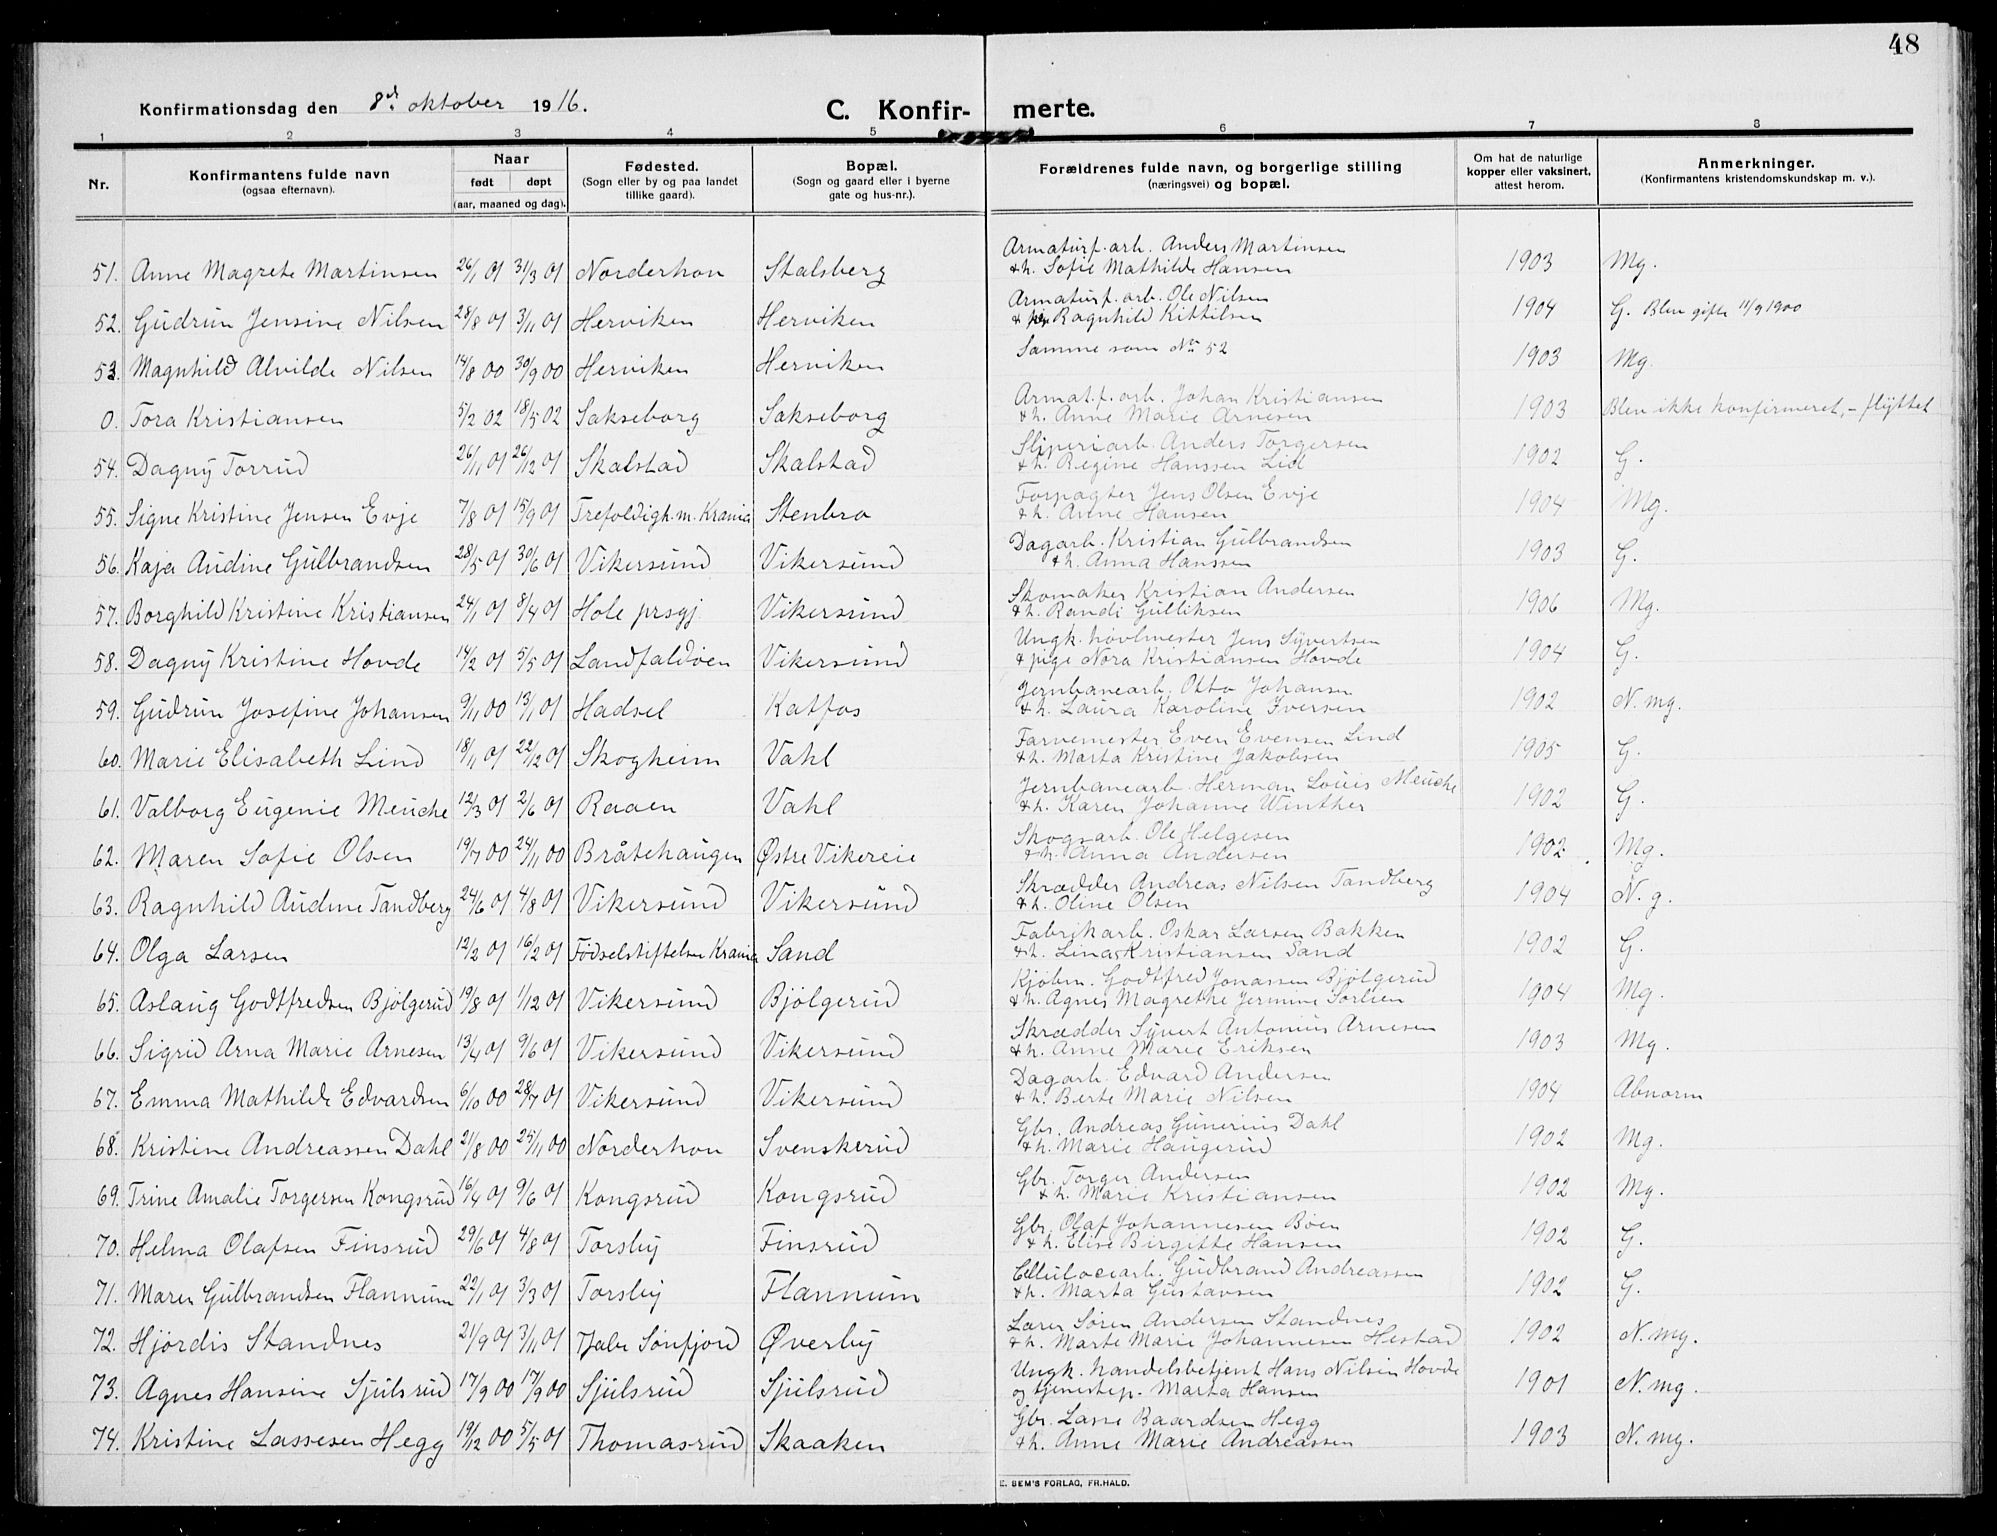 48
Konfirmationsdag den 8de oktober 1916.
C. Konfirmerte.
1 2 3 4 5 6 7 8
Nr. Konfirmantens fulde navn (ogsaa efternavn). Naar født døpt (aar, maaned og dag). Fødested. (Sogn eller by og paa landet tillike gaard). Bopæl. (Sogn og gaard eller i byerne gate og hus-nr.). Forældrenes fulde navn, og borgerlige stilling (næringsvei) og bopæl. Om hat de naturlige kopper eller vaksinert, attest herom. Anmerkninger. (Konfirmantens kristendomskundskap m. v.).
51. Anne Magrete Martinsen 26/1 01 31/3 01 Norderhov Stalsberg Armaturf. arb. Anders Martinsen & h. Sofie Mathilde Hansen 1903 Mg.
52. Gudrun Jensine Nilsen 28/8 01 3/11 01 Herviken Herviken Armaturf. arb. Ole Nilsen & Ragnhild Kittilsen 1904 G. Blev gifte 11/9 1900
53. Magnhild Alvilde Nilsen 14/8 00 30/9 00 Herviken Herviken Samme som No 52 1903 Mg.
0. Tora Kristiansen 5/2 02 18/5 02 Sakseborg Sakseborg Armat. f. arb. Johan Kristiansen & h. Anne Marie Arnesen 1903 Blev ikke konfirmeret, - flyttet
54. Dagny Torrud 26/11 01 26/12 01 Skalstad Skalstad Sliperiarb. Anders Torgersen & h. Regine Hanssen Lid 1902 G.
55. Signe Kristine Jensen Evje 7/8 01 15/9 01 Trefoldigh. m. Krania Stenbro Forpagter Jens Olsen Evje & h. Anne Hansen 1904 Mg.
56. Kaja Audine Gulbrandsen 28/5 01 30/6 01 Vikersund Vikersund Dagarb. Kristian Gulbrandsen & h. Anna Hanssen 1903 G.
57. Borghild Kristine Kristiansen 24/1 01 8/4 01 Hole prsgj. Vikersund Skomaker Kristian Andersen & h. Randi Gulliksen 1906 Mg.
58. Dagny Kristine Hovde 14/2 01 5/5 01 Landfaldöen Vikersund Ungk. hövlmester Jens Syvertsen & pige Nora Kristiansen Hovde 1904 G.
59. Gudrun Josefine Johansen 9/11 00 13/1 01 Hadsel Katfos Jernbanearb. Otto Johansen & h. Laura Karoline Iversen 1902 N. mg.
60. Marie Elisabeth Lind 18/11 01 22/12 01 Skogheim Vahl Farvemester Even Evensen Lind & h. Marta Kristine Jakobsen 1905 G.
61. Valborg Eugenie Meuche 12/3 01 2/6 01 Raaen Vahl Jernbanearb. Herman Louis Meuche & h. Karen Johanne Winther 1902 G.
62. Maren Sofie Olsen 19/7 00 24/11 00 Bråtehaugen Østre Vikereie Skogsarb. Ole Helgesen & h. Anna Andersen 1902 Mg.
63. Ragnhild Audine Tandberg 24/6 01 4/8 01 Vikersund Vikersund Skrædder Andreas Nilsen Tandberg & h. Oline Olsen 1904 N. g.
64. Olga Larsen 12/2 01 16/2 01 Fødselstiftelsen Krania Sand Fabrikarb. Oskar Larsen Bakken & h. Lina Kristiansen Sand 1902 G.
65. Aslaug Godtfredsen Bjölgerud 19/8 01 1/12 01 Vikersund Bjölgerud Kjøbm. Godtfred Jonassen Bjölgerud & h. Agnes Magrethe Jermine Sørlien 1904 Mg.
66. Sigrid Arna Marie Arnesen 13/4 01 9/6 01 Vikersund Vikersund Skrædder Syvert Antonius Arnesen & h. Anne Marie Eriksen 1903 Mg.
67. Emma Mathilde Edvardsen 6/10 00 28/7 01 Vikersund Vikersund Dagarb. Edvard Andersen & h. Berte Marie Nilsen 1904 Abnorm
68. Kristine Andreassen Dahl 21/8 00 25/11 00 Norderhov Svenskerud Gbr. Andreas Gunerius Dahl & h. Marie Haugerud 1902 Mg.
69. Trine Amalie Torgersen Kongsrud 16/4 01 9/6 01 Kongsrud Kongsrud Gbr. Torger Andersen & h. Marie Kristiansen 1902 Mg.
70. Helma Olafsen Finsrud 29/6 01 4/8 01 Torsby Finsrud Gbr. Olaf Johannesen Bøen & h. Elise Birgitte Hansen 1902 G.
71. Maren Gulbrandsen Flannum 22/1 01 3/3 01 Torsby Flannum Cellulosearb. Gudbrand Andreassen & h. Marta Gustavsen 1902 G.
72. Hjördis Standnes 21/9 01 3/11 01 Sønfjord Øverby Lærer Sören Andersen Standnes & h. Marte Marie Johannesen Hestad 1902 N. mg.
73. Agnes Hansine Sjulsrud 17/9 00 17/9 00 Sjulsrud Sjulsrud Ungk. handelsbetjent Hans Nilsen Hovde og tjenestep. Marta Hansen 1901 N. mg.
74. Kristine Lassesen Hegg 19/12 00 5/5 01 Thomasrud Skaaken Gbr. Lasse Baardsen Hegg & h. Anne Marie Andreassen 1903 N. mg.
E. SEM'S FORLAG, FR.HALD.